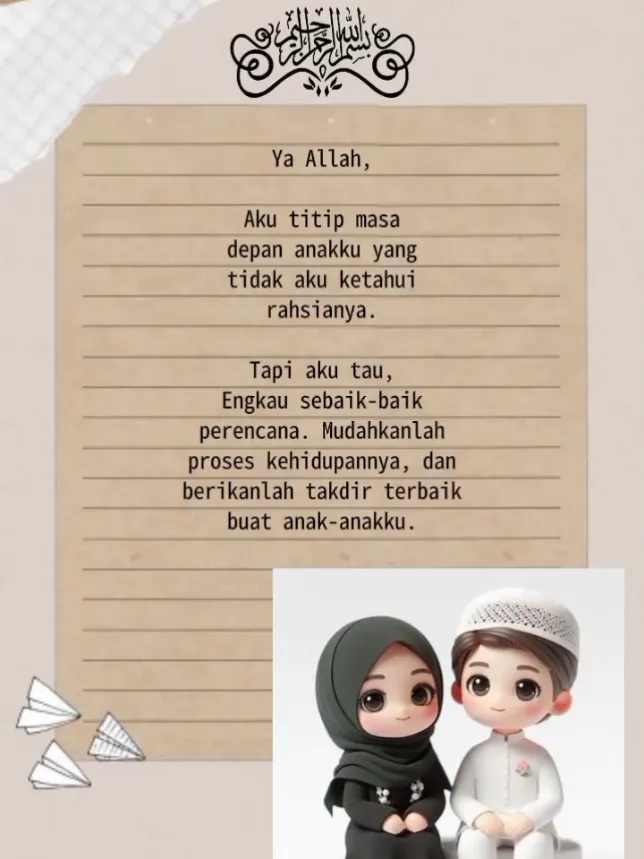 بسم الله الرحمن الرحيم
Ya Allah,
Aku titip masa
depan anakku yang
tidak aku ketahui
rahsianya.
Tapi aku tau,
Engkau sebaik-baik
perencana. Mudahkanlah
proses kehidupannya, dan
berikanlah takdir terbaik
buat anak-anakku.